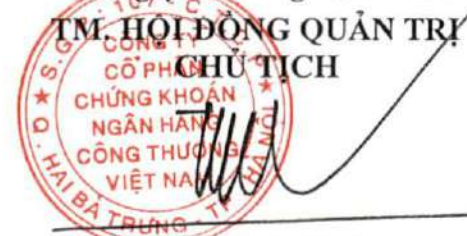 TM. HỘI ĐỒNG QUẢN TRỊ
CHỦ TỊCH
CÔNG TY
CỔ PHẦN
CHỨNG KHOÁN
NGÂN HÀNG
CÔNG THƯƠNG
VIỆT NAM
Q. HAI BÀ TRƯNG - TP. HÀ NỘI